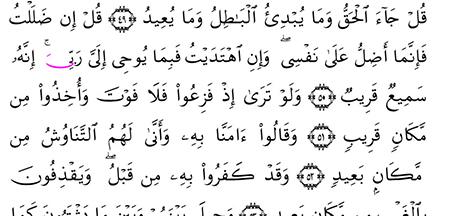 قُلْ جَآءَ ٱلْحَقُّ وَمَا يُبْدِئُ ٱلْبَٰطِلُ وَمَا يُعِيدُ ٤٩ قُلْ إِن ضَلَلْتُ
فَإِنَّمَآ أَضِلُّ عَلَىٰ نَفْسِى ۖ وَإِنِ ٱهْتَدَيْتُ فَبِمَا يُوحِىٓ إِلَىَّ رَبِّىٓ ۚ إِنَّهُۥ
سَمِيعٌ قَرِيبٌ ٥٠ وَلَوْ تَرَىٰٓ إِذْ فَزِعُوا۟ فَلَا فَوْتَ وَأُخِذُوا۟ مِن
مَّكَانٍ قَرِيبٍ ٥١ وَقَالُوٓا۟ ءَامَنَّا بِهِۦ وَأَنَّىٰ لَهُمُ ٱلتَّنَاوُشُ مِن
مَّكَانٍۭ بَعِيدٍ ٥٢ وَقَدْ كَفَرُوا۟ بِهِۦ مِن قَبْلُ ۖ وَيَقْذِفُونَ
بِٱلْغَيْبِ مِن مَّكَانٍۭ بَعِيدٍ ٥٣ وَحِيلَ بَيْنَهُمْ وَبَيْنَ مَا يَشْتَهُونَ كَمَا